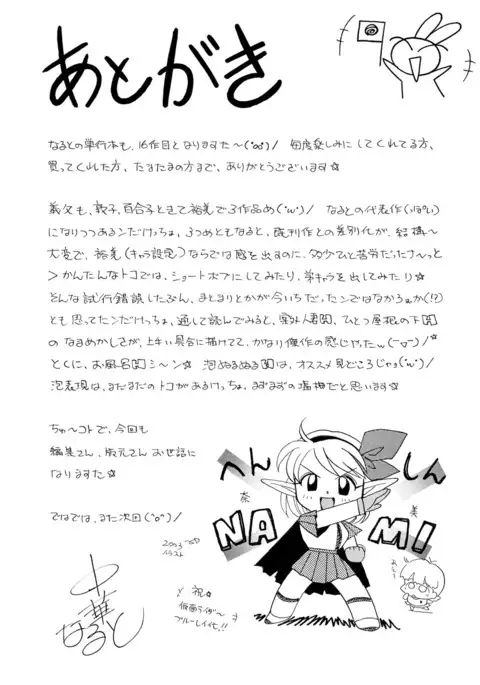 あとがき
なるとの単行本も、16作目となりますた〜(°ω°)/ 毎度楽しみにしてくれてる方、
買ってくれた方、たまたまの方まで、ありがとうございます☆
義父も、敦子、百合子ときて裕美で3作品め(°w°)/ なるとの代表作(っぽい)
になりつつあるンだけっちょ、3つめともなると、既刊作との差別化が、結構〜
大変で、裕美(キャラ設定)ならでは感を出すのに、多少ひと苦労だったナ〜っと
> かんたんなトコでは、ショートボブにしてみたり、学キャラを出してみたり☆
そんな試行錯誤したぶん、まとまりとかが今いちだったンではなかろぉか(!?)
とも思ってたンだけっちょ、通して読んでみると、案外人妻、ひとつ屋根の下
のなまめかしさが、上手い具合に描けてて、かなり傑作の感じやったw(¯▽¯)/☆
とくに、お風呂シ〜ン☆ 泡ぬるぬるは、オススメ見どころじゃョ(°w°)/
泡表現は、まだまだのトコがあるけっちょ、まずまずの塩梅だと思います☆
ちゅ〜コトで、今回も
編集さん、版元さん お世話に
なりますた☆
ではでは、また次回(°o°)/
へん
しん
奈
美
NA
MI
2003
イラスト
祝☆
仮面ライダー
ブルーレイ化!!
中華
なると